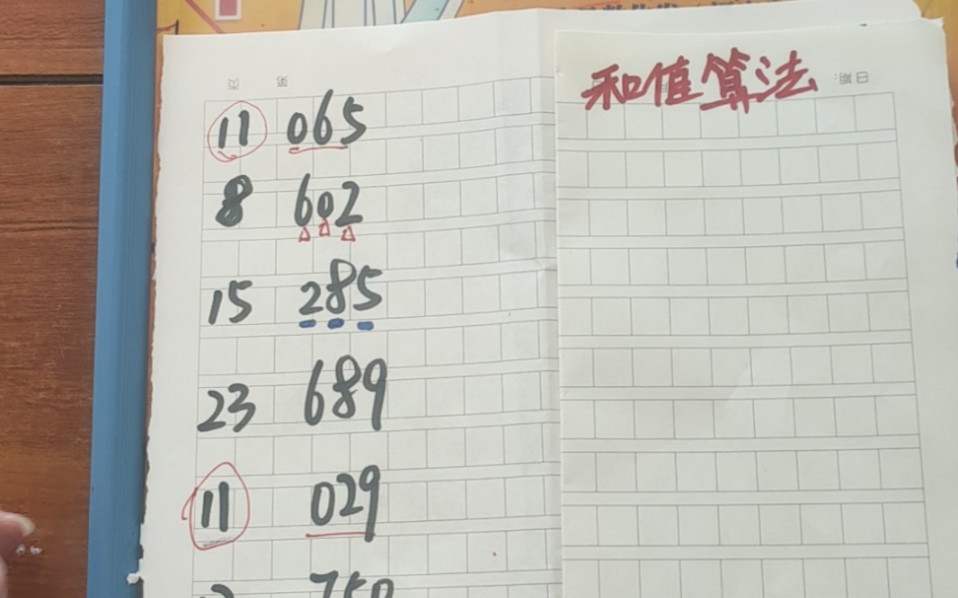 和值算法
11 065
8 602
15 285
23 689
11 029